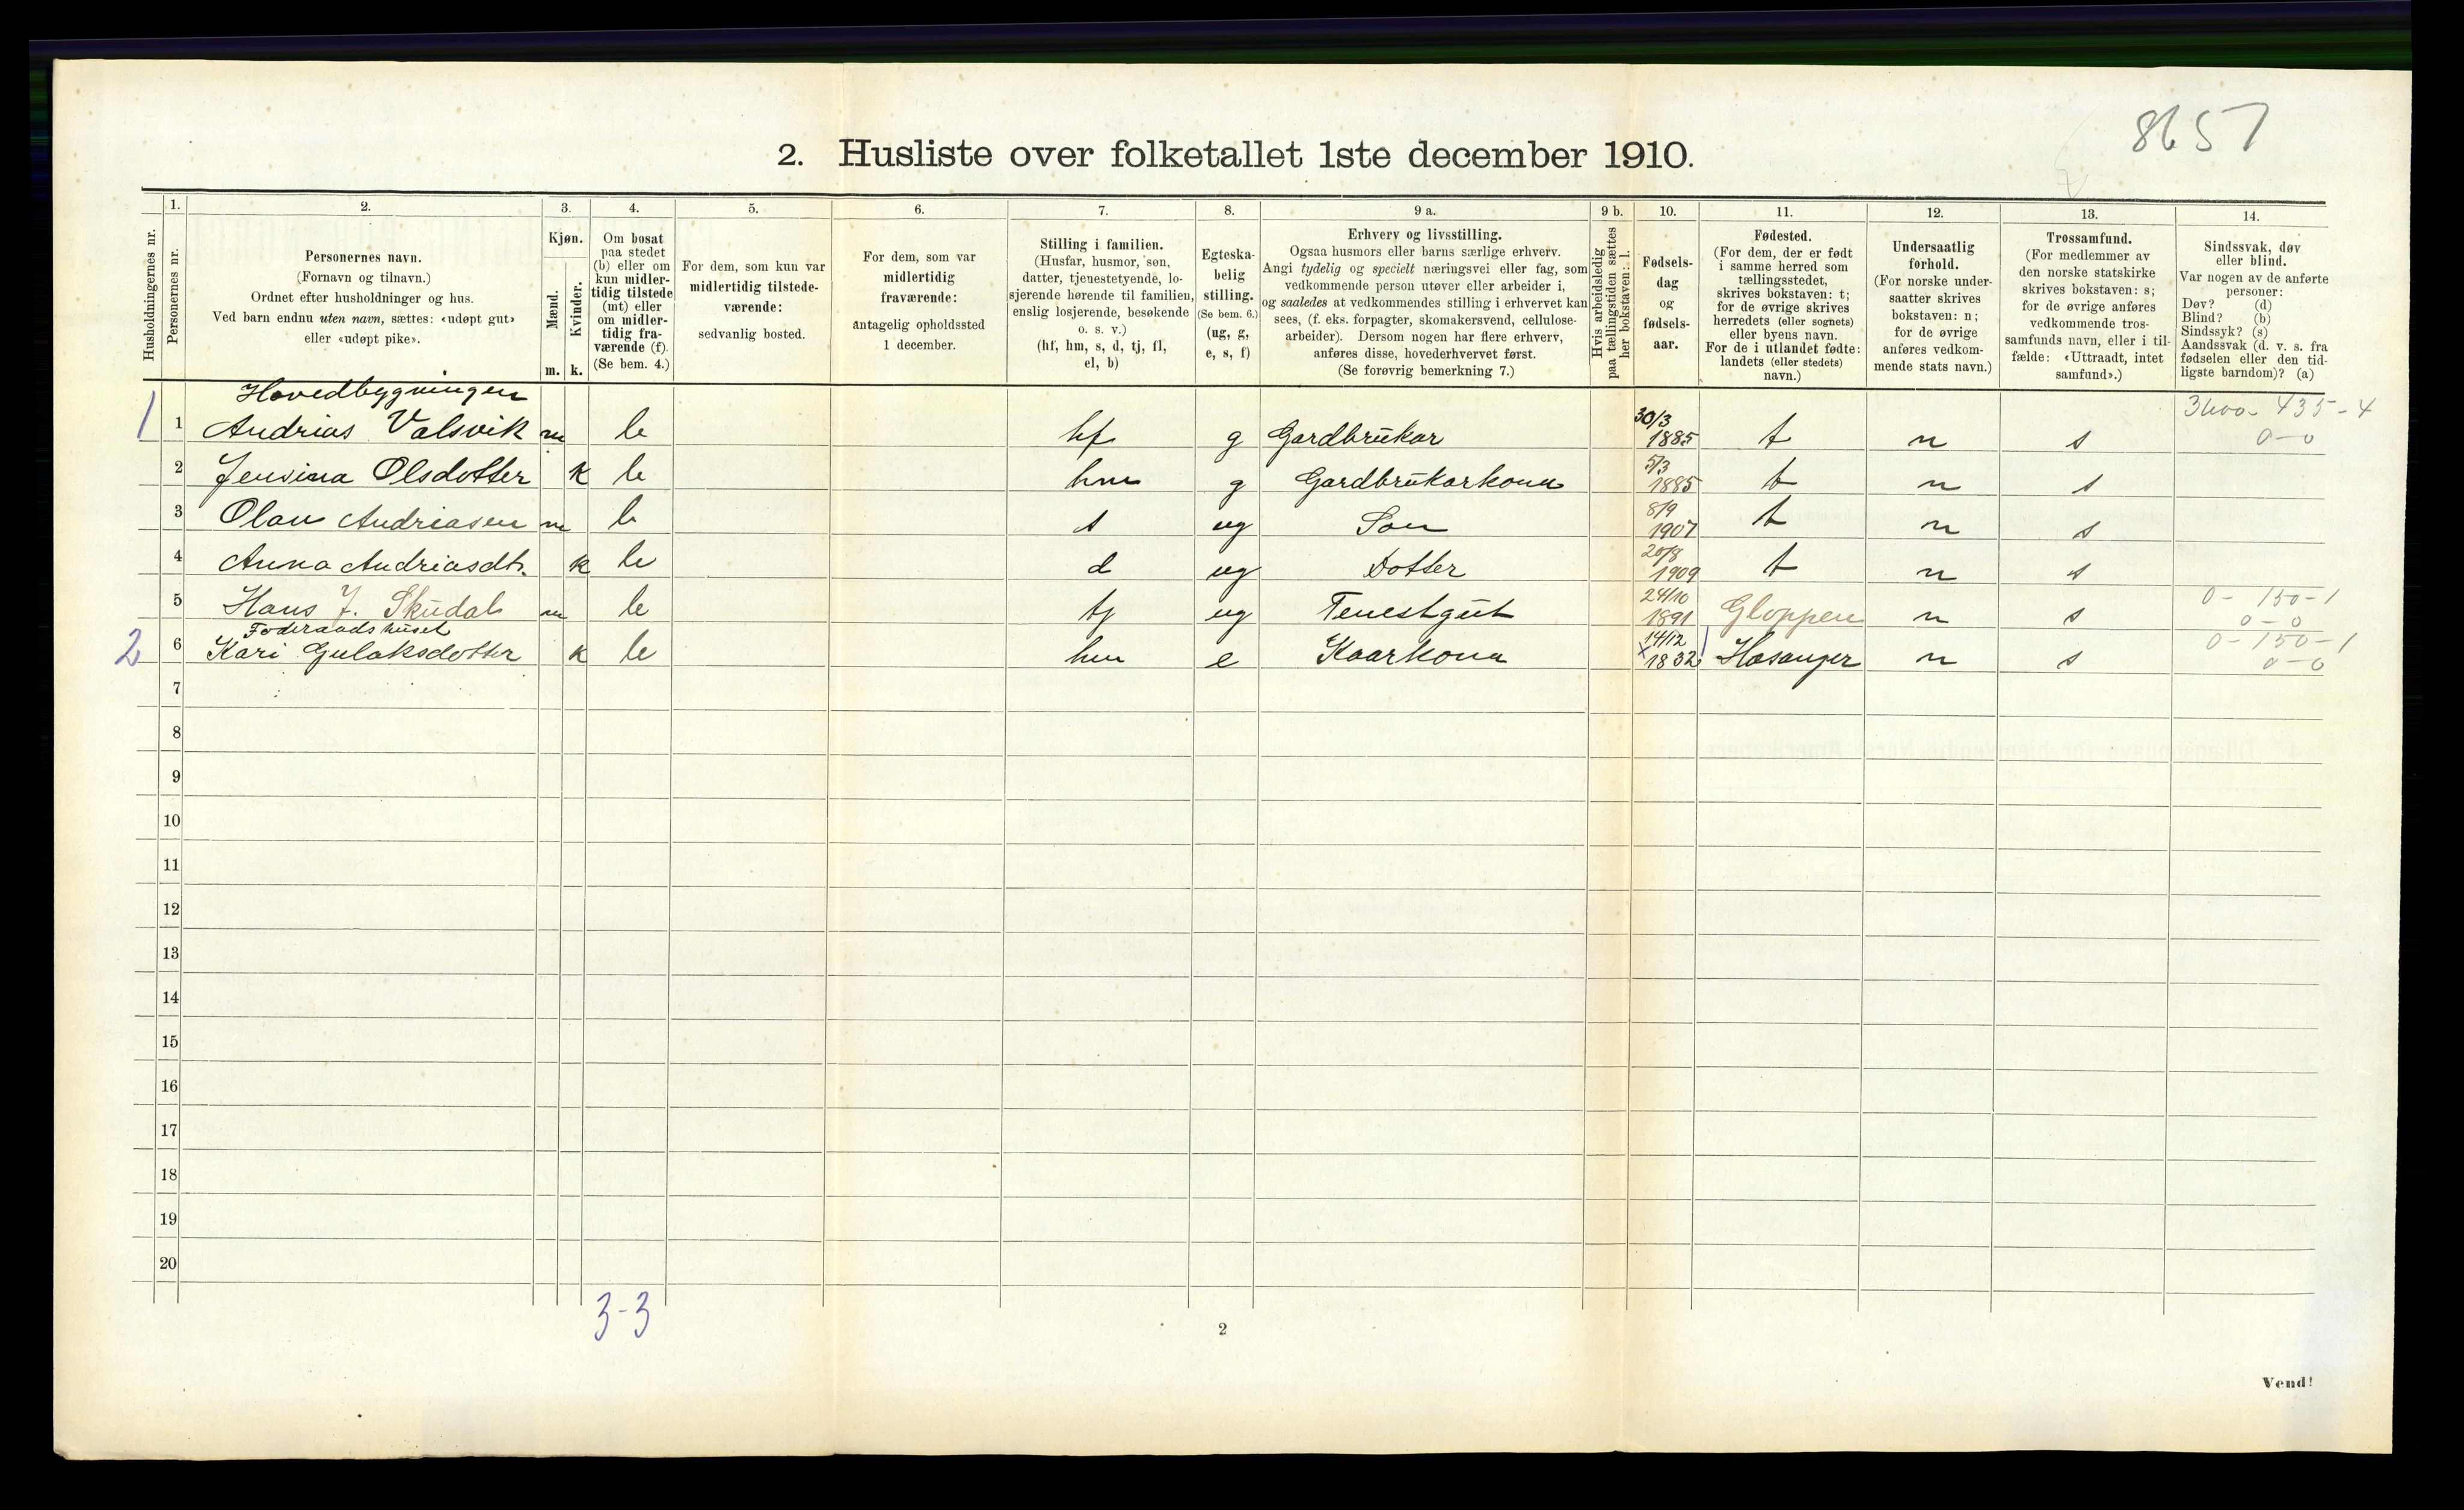 8657
2. Husliste over folketallet 1ste december 1910.
Husholdningernes nr.
1.
Personernes nr.
2.
Personernes navn.
(Fornavn og tilnavn.)
Ordnet efter husholdninger og hus.
Ved barn endnu uten navn, sættes: «udøpt gut»
eller «udøpt pike».
3.
Kjøn.
Mænd.
Kvinder.
m. k.
4.
Om bosat
paa stedet
(b) eller om
kun midler-
tidig tilstede
(mt) eller
om midler-
tidig fra-
værende (f).
(Se bem. 4.)
5.
For dem, som kun var
midlertidig tilstede-
værende:
sedvanlig bosted.
6.
For dem, som var
midlertidig
fraværende:
antagelig opholdssted
1 december.
7.
Stilling i familien.
(Husfar, husmor, søn,
datter, tjenestetyende, lo-
sjerende hørende til familien,
enslig losjerende, besøkende
o. s. v.)
(hf, hm, s, d, tj, fl,
el, b)
8.
Egteska-
belig
stilling.
(Se bem. 6.)
(ug, g,
e, s, f)
9 a.
Erhverv og livsstilling.
Ogsaa husmors eller barns særlige erhverv.
Angi tydelig og specielt næringsvei eller fag, som
vedkommende person utøver eller arbeider i,
og saaledes at vedkommendes stilling i erhvervet kan
sees, (f. eks. forpagter, skomakersvend, cellulose-
arbeider). Dersom nogen har flere erhverv,
anføres disse, hovederhvervet først.
(Se forøvrig bemerkning 7.)
9 b.
Hvis arbeidsledig
paa tællingstiden sættes
her bokstaven: l.
10.
Fødsels-
dag
og
fødsels-
aar.
11.
Fødested.
(For dem, der er født
i samme herred som
tællingsstedet,
skrives bokstaven: t;
for de øvrige skrives
herredets (eller sognets)
eller byens navn.
For de i utlandet fødte:
landets (eller stedets)
navn.)
12.
Undersaatlig
forhold.
(For norske under-
saatter skrives
bokstaven: n;
for de øvrige
anføres vedkom-
mende stats navn.)
13.
Trossamfund.
(For medlemmer av
den norske statskirke
skrives bokstaven: s;
for de øvrige anføres
vedkommende tros-
samfunds navn, eller i til-
fælde: «Uttraadt, intet
samfund».)
14.
Sindssvak, døv
eller blind.
Var nogen av de anførte
personer:
Døv? (d)
Blind? (b)
Sindssyk? (s)
Aandssvak (d. v. s. fra
fødselen eller den tid-
ligste barndom)? (a)
Hovedbygningen
1 1 Andrias Valsvik m b hf g Gardbrukar 30/3 1885 t n s 3600 - 435 - 4 0-0
2 Jensina Olsdotter k b hm g Gardbrukarkona 5/3 1885 t n s
3 Olav Andriasen m b s ug Son 8/9 1907 t n s
4 Anna Andriasdtr. k b d ug Dotter 20/8 1909 t n s
5 Hans J. Skudal m b tj ug Tenestgut 24/10 1891 Gloppen n s 0 - 150 - 1 0-0
Foderaadshuset
2 6 Kari Gulaksdotter k b hm e Kaarkona 14/12 x 1832 Hosanger n s 0 - 150 - 1 0-0
7
8
9
10
11
12
13
14
15
16
17
18
19
20
3-3
2
Vend!